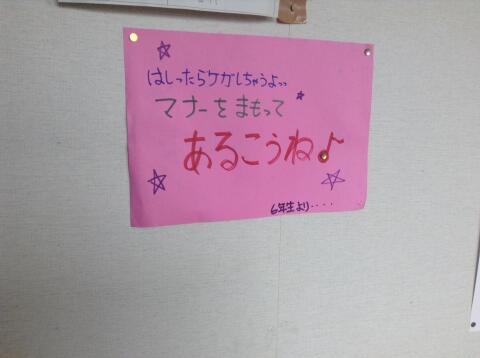 はしったらケガしちゃうよっっ
マナーをまもって
あるこうね♪
6年生より・・・・